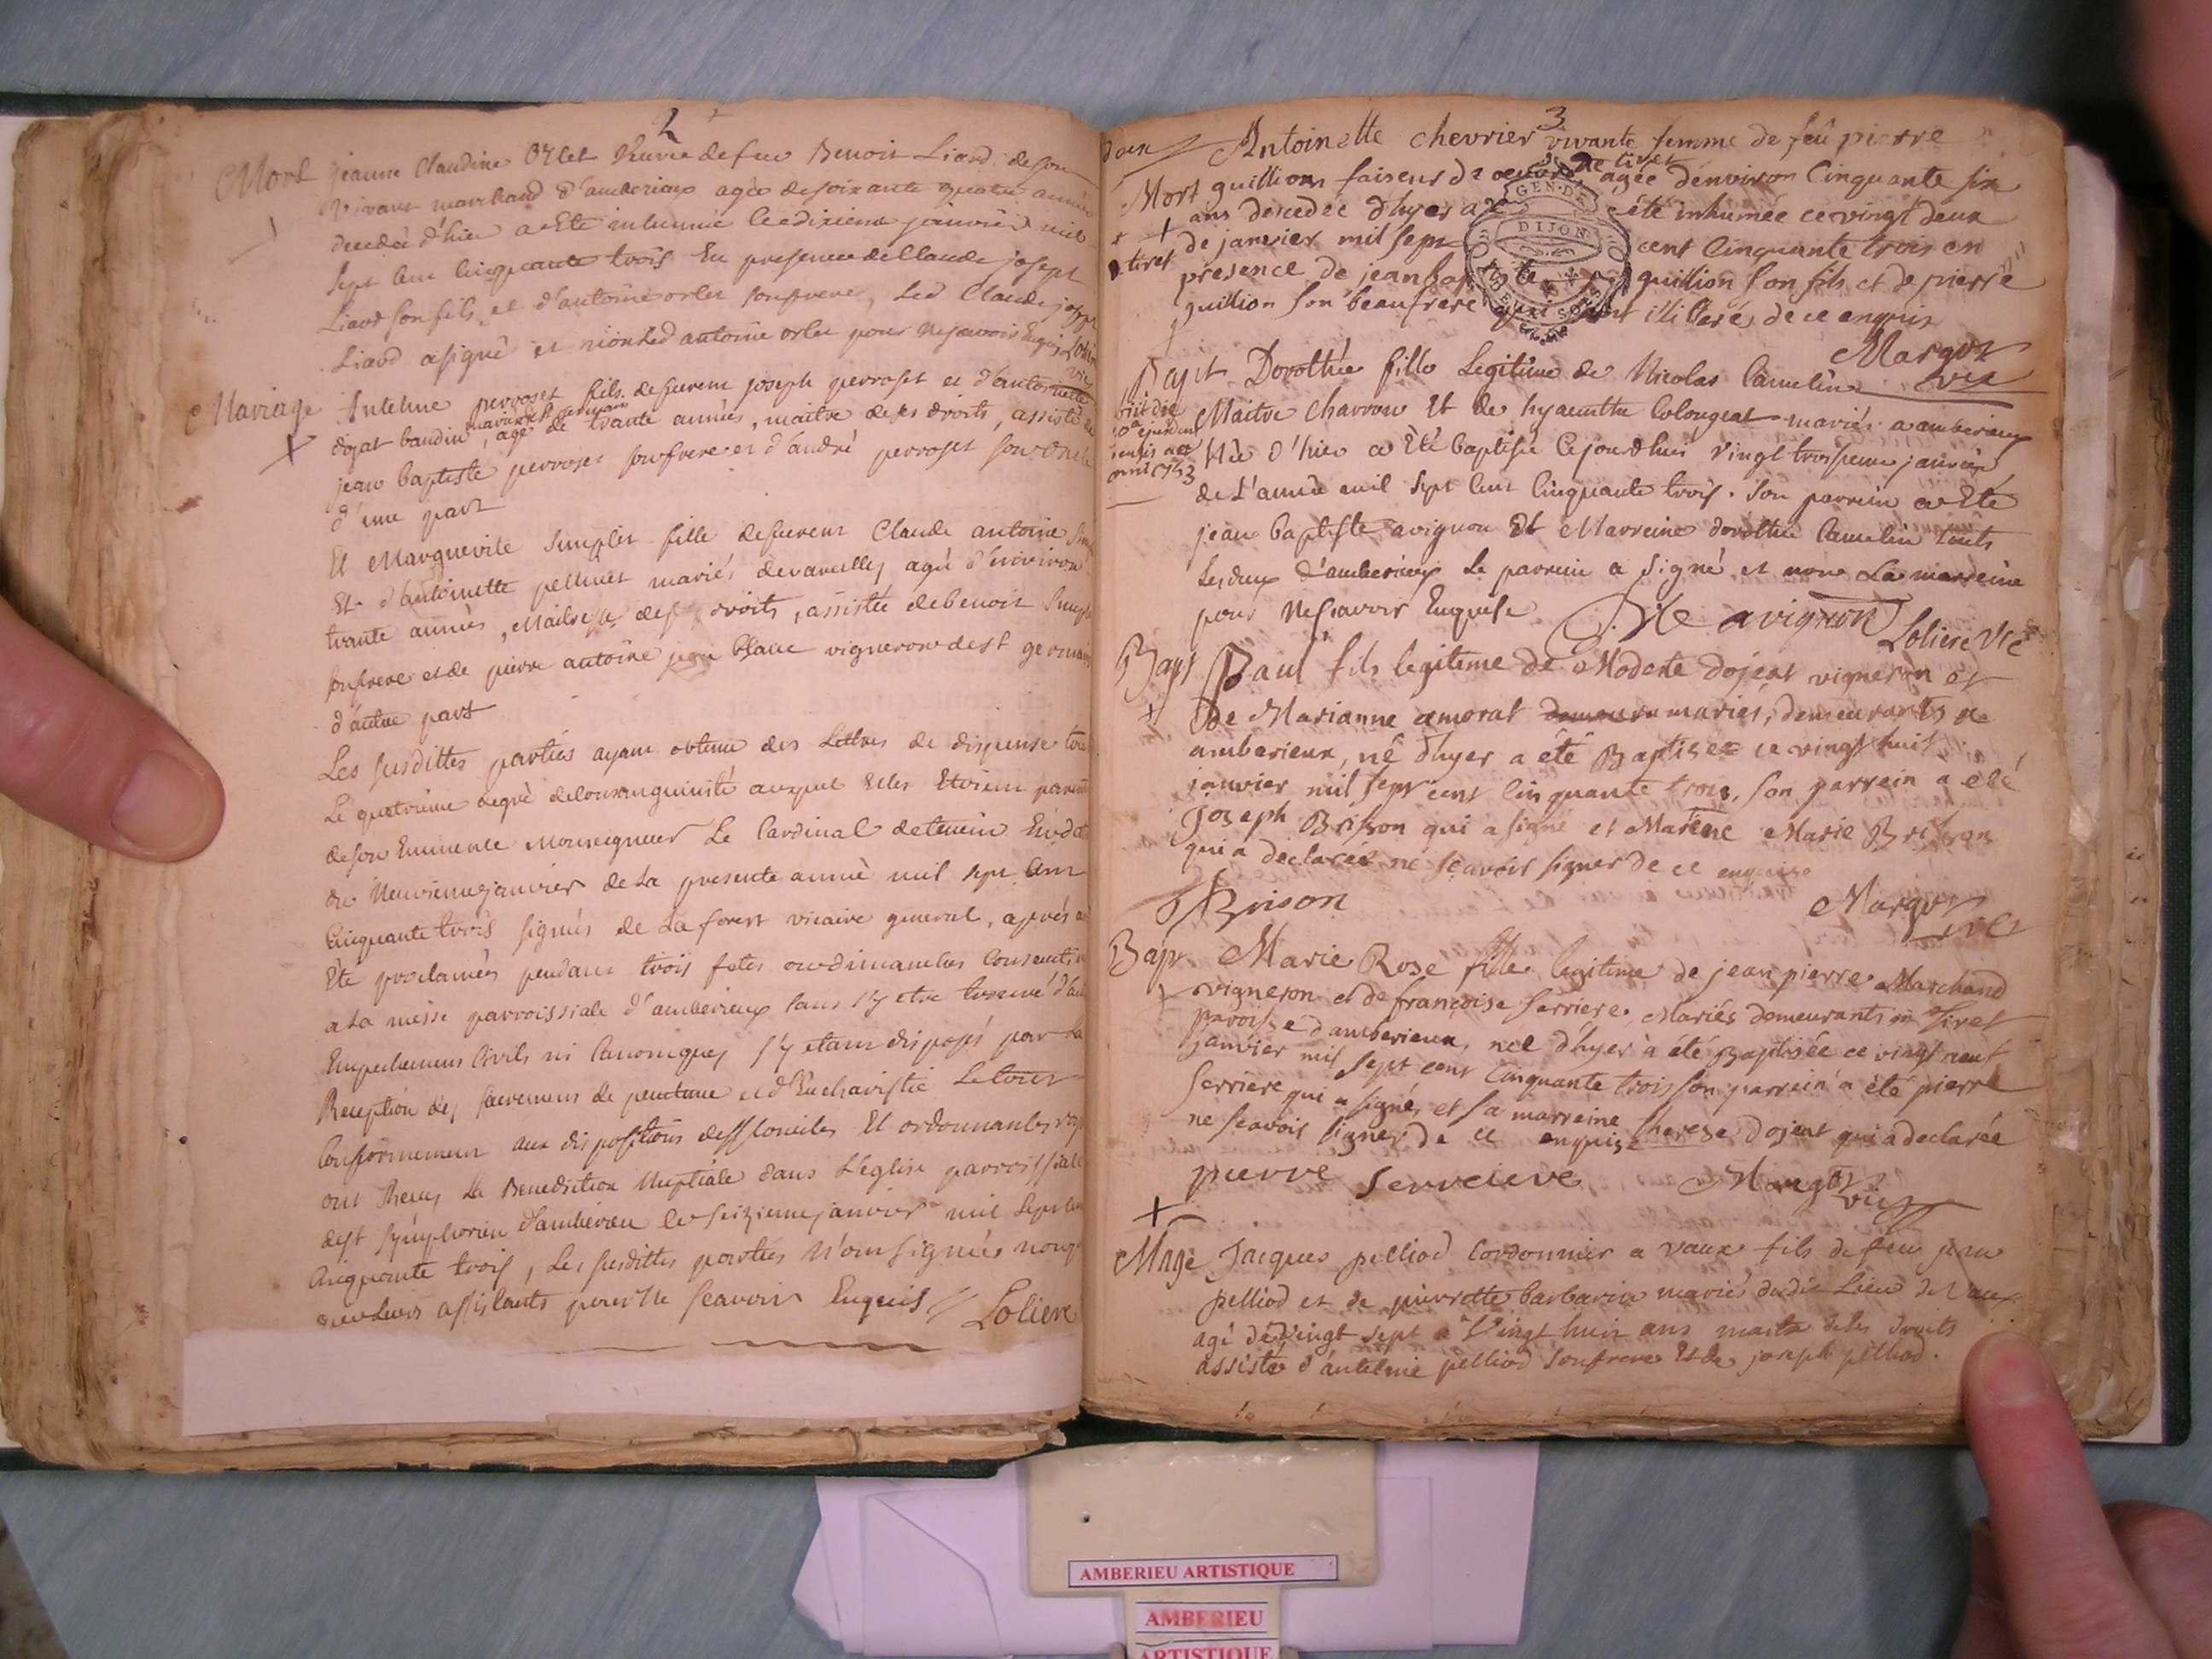 2
Mort
jeanne Claudine Orlet Veuve de feu Benoit Liard de son
Vivant marchand d'amberieux agée de soixante quatre années
decedée d'hier a Eté inhumée le dixieme janvier mil
sept Cent Cinquante trois En presence de Claude joseph
Liard son fils et d'antoine orlet son frere, Led Claude joseph
Liard a signé et non Led antoine orlet pour ne scavoir Enquis
Mariage
Antelme perroset fils de furent joseph perroset et d'antoinette
dojat baudin, agé de trante années, maitre de ses droits, assisté de
jean baptiste perroset son frere et d'andré perroset son oncle
d'une part
Et Marguerite Simplet fille de furent Claude antoine
Et d'antoinette pellinet mariés de vareilles agée d'environ
trante années, Maitresse de ses droits, assistée de benoit
son frere et de pierre antoine jean blanc vigneron de st germain
d'autre part
Les susdittes parties ayant obtenu des Lettres de dispense
Le quatrieme degré de consanguinité auquel Elles Etoient
de son Eminence Monseigneur Le Cardinal de tencin
du Neuvieme janvier de La presente année mil sept Cent
Cinquante trois signés de La forest vicaire general, après
Eté proclamées pendant trois fetes ou dimanches Consecutifs
a La messe parroissiale d'amberieux sans s'y etre trouvé
Empechement Civils ni Canoniques s'y etant disposés par La
Reception des sacremens de penitence et d'Eucharistie Le tout
Conformement aux dispositions des Conciles Et ordonnances
ont Recus La Benediction Nuptiale dans L'église parroissiale
de st symphorien d'amberieu le seizieme janvier mil sept Cent
Cinquante trois, Les susdittes parties N'ont signées non
que Leurs assistants pour Ne scavoir Enquis Loliere
3
Antoinette chevrier vivante femme de feû pierre
Mort
guillion faiseur de agée d'environ Cinquante six
ans decedée d'hyer a été inhumée ce vingt deux
de janvier mil sept cent Cinquante trois en
tiret
presence de jean baptiste guillion son fils et de pierre
guillion son beaufrere qui sont illiteré, de ce enquis
Margot
vic
GEN. DE
DIJON
Bapt
Dorothée fille Legitime de Nicolas Camelin
Maitre charron Et de hyacinthe Colongeat mariés a amberieux
Née d'hier a Eté baptisée cejourdhui vingt troisieme janvier
de L'année mil sept Cent Cinquante trois. son parrein a Eté
jean baptiste avignon Et Marreine dorothée Camelin touts
Les deux d'amberieux Le parrein a signé et non La marreine
pour Ne scavoir Enquise
avignon
Loliere Vic
Bapt
Paul fils legiteme de Modeste dojeat vigneron et
de Marianne amorat mariés, demeurants a
amberieux, né d'hyer a été Baptisé ce vingt huit
janvier mil sept cent cinquante trois, son parrein a eté
Joseph Brisson qui a signé et Mareine Marie Brisson
qui a declarée ne scavoir signer de ce enquise
J Brison
Margot
vic
Bapt
Marie Rose fille legitime de jean pierre Marchand
vigneron et de francoise serriere, Mariés demeurants a Tiret
paroisse d'amberieux, née d'hyer a été Baptisée ce vingt neuf
janvier mil sept cent Cinquante trois son parrein a été pierre
serriere qui a signé, et sa marreine therese dojeat qui a declarée
ne scavoir signer de ce enquise
pierre serreieve
Margot
vic
Mage
Jacques pelliod Cordonnier a vaux fils de feu jean
pelliod et de pierrette barbarin mariés dudit Lieu de vaux
agé de vingt sept a Vingt huit ans maitre de ses droits
assisté d'antelme pelliod son frere Et de joseph pelliod.
AMBERIEU ARTISTIQUE
AMBERIEU
ARTISTIQUE